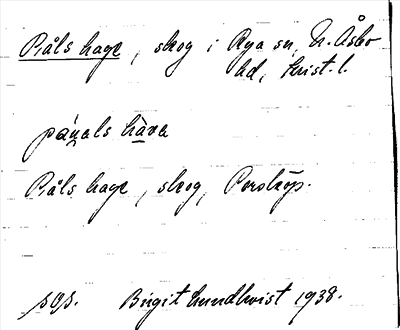 Påls hage, skog i Rya sn, N. Åsbo
hd, Krist. l.
páu̯als hàva
Påls hage, skog, Perstorp.
sgs. Birgit Lundkvist 1938.